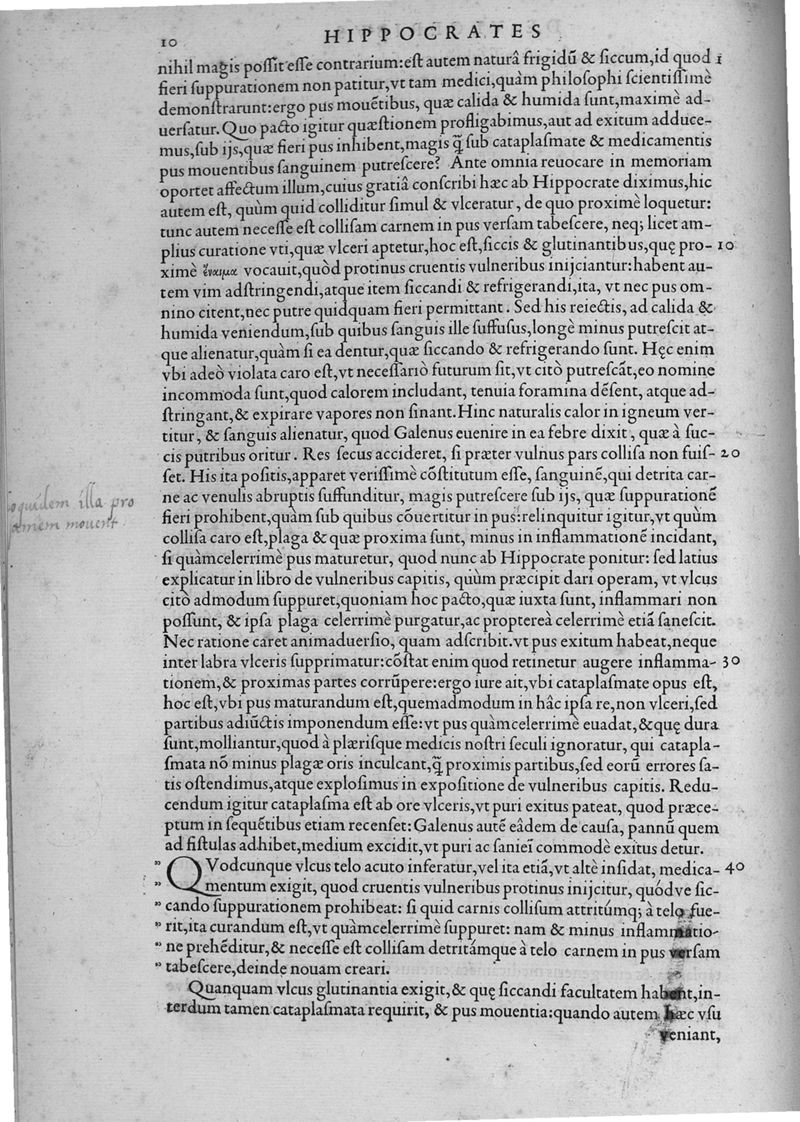 10
HIPPOCRATES
nihil magis poſſit eſſe contrarium:eſt autem naturâ frigidũ & ſiccum,id quod 1
fieri ſuppurationem non patitur,vt tam medici,quàm philoſophi ſcientiſſimè
demonſtrarunt:ergo pus mouẽtibus, quæ calida & humida ſunt,maximè ad-
uerſatur. Quo pacto igitur quæſtionem profligabimus,aut ad exitum adduce-
mus,ſub ijs,quæ fieri pus inhibent,magis q̃ ſub cataplaſmate & medicamentis
pus mouentibus ſanguinem putreſcere? Ante omnia reuocare in memoriam
oportet affectum illum,cuius gratiâ conſcribi hæc ab Hippocrate diximus,hic
autem eſt, quùm quid colliditur ſimul & vlceratur, de quo proximè loquetur:
tunc autem neceſſe eſt colliſam carnem in pus verſam tabeſcere, neq; licet am-
plius curatione vti,quæ vlceri aptetur,hoc eſt,ſiccis & glutinantibus,quę pro- 10
ximè ἔναιμα vocauit,quòd protinus cruentis vulneribus inijciantur:habent au-
tem vim adſtringendi,atque item ſiccandi & refrigerandi,ita, vt nec pus om-
nino citent,nec putre quidquam fieri permittant. Sed his reiectis, ad calida &
humida veniendum,ſub quibus ſanguis ille ſuffuſus,longè minus putreſcit at-
que alienatur,quàm ſi ea dentur,quæ ſiccando & refrigerando ſunt. Hęc enim
vbi adeò violata caro eſt,vt neceſſariò futurum ſit,vt citò putreſcãt,eo nomine
incommoda ſunt,quod calorem includant, tenuia foramina dẽſent, atque ad-
ſtringant,& expirare vapores non ſinant.Hinc naturalis calor in igneum ver-
titur, & ſanguis alienatur, quod Galenus euenire in ea febre dixit, quæ à ſuc-
cis putribus oritur. Res ſecus accideret, ſi præter vulnus pars colliſa non fuiſ- 20
ſet. His ita poſitis,apparet veriſſimè cõſtitutum eſſe, ſanguinẽ,qui detrita car-
ne ac venulis abruptis ſuffunditur, magis putreſcere ſub ijs, quæ ſuppurationẽ
fieri prohibent,quàm ſub quibus cõuertitur in pus:relinquitur igitur,vt quùm
colliſa caro eſt,plaga & quæ proxima ſunt, minus in inflammationẽ incidant,
ſi quàmcelerrimè pus maturetur, quod nunc ab Hippocrate ponitur: ſed latius
explicatur in libro de vulneribus capitis, quùm præcipit dari operam, vt vlcus
citò admodum ſuppuret,quoniam hoc pacto,quæ iuxta ſunt, inflammari non
poſſunt, & ipſa plaga celerrimè purgatur,ac propterea celerrimè etiã ſaneſcit.
Nec ratione caret animaduerſio, quam adſcribit.vt pus exitum habeat,neque
inter labra vlceris ſupprimatur:cõſtat enim quod retinetur augere inflamma- 30
tionem,& proximas partes corrũpere:ergo iure ait,vbi cataplaſmate opus eſt,
hoc eſt,vbi pus maturandum eſt,quemadmodum in hâc ipſa re,non vlceri,ſed
partibus adiũctis imponendum eſſe:vt pus quàmcelerrimè euadat,&quę dura
ſunt,molliantur,quod à plæriſque medicis noſtri ſeculi ignoratur, qui catapla-
ſmata nõ minus plagæ oris inculcant,q̃ proximis partibus,ſed eorũ errores ſa-
tis oſtendimus,atque exploſimus in expoſitione de vulneribus capitis. Redu-
cendum igitur cataplaſma eſt ab ore vlceris,vt puri exitus pateat, quod præce-
ptum in ſequẽtibus etiam recenſet: Galenus autẽ eâdem de cauſa, pannũ quem
ad fiſtulas adhibet,medium excidit,vt puri ac ſaniei commodè exitus detur.
QVodcunque vlcus telo acuto inferatur,vel ita etiã,vt altè inſidat, medica- 40
mentum exigit, quod cruentis vulneribus protinus inijcitur, quódve ſic-
cando ſuppurationem prohibeat: ſi quid carnis colliſum attritúmq; à telo fue-
rit,ita curandum eſt,vt quàmcelerrimè ſuppuret: nam & minus inflammatio-
ne prehẽditur,& neceſſe eſt colliſam detritámque à telo carnem in pus verſam
tabeſcere,deinde nouam creari.
Quanquam vlcus glutinantia exigit,& quę ſiccandi facultatem habent,in-
terdum tamen cataplaſmata requirit, & pus mouentia:quando autem hæc vſu
veniant,
illa pro
mouent